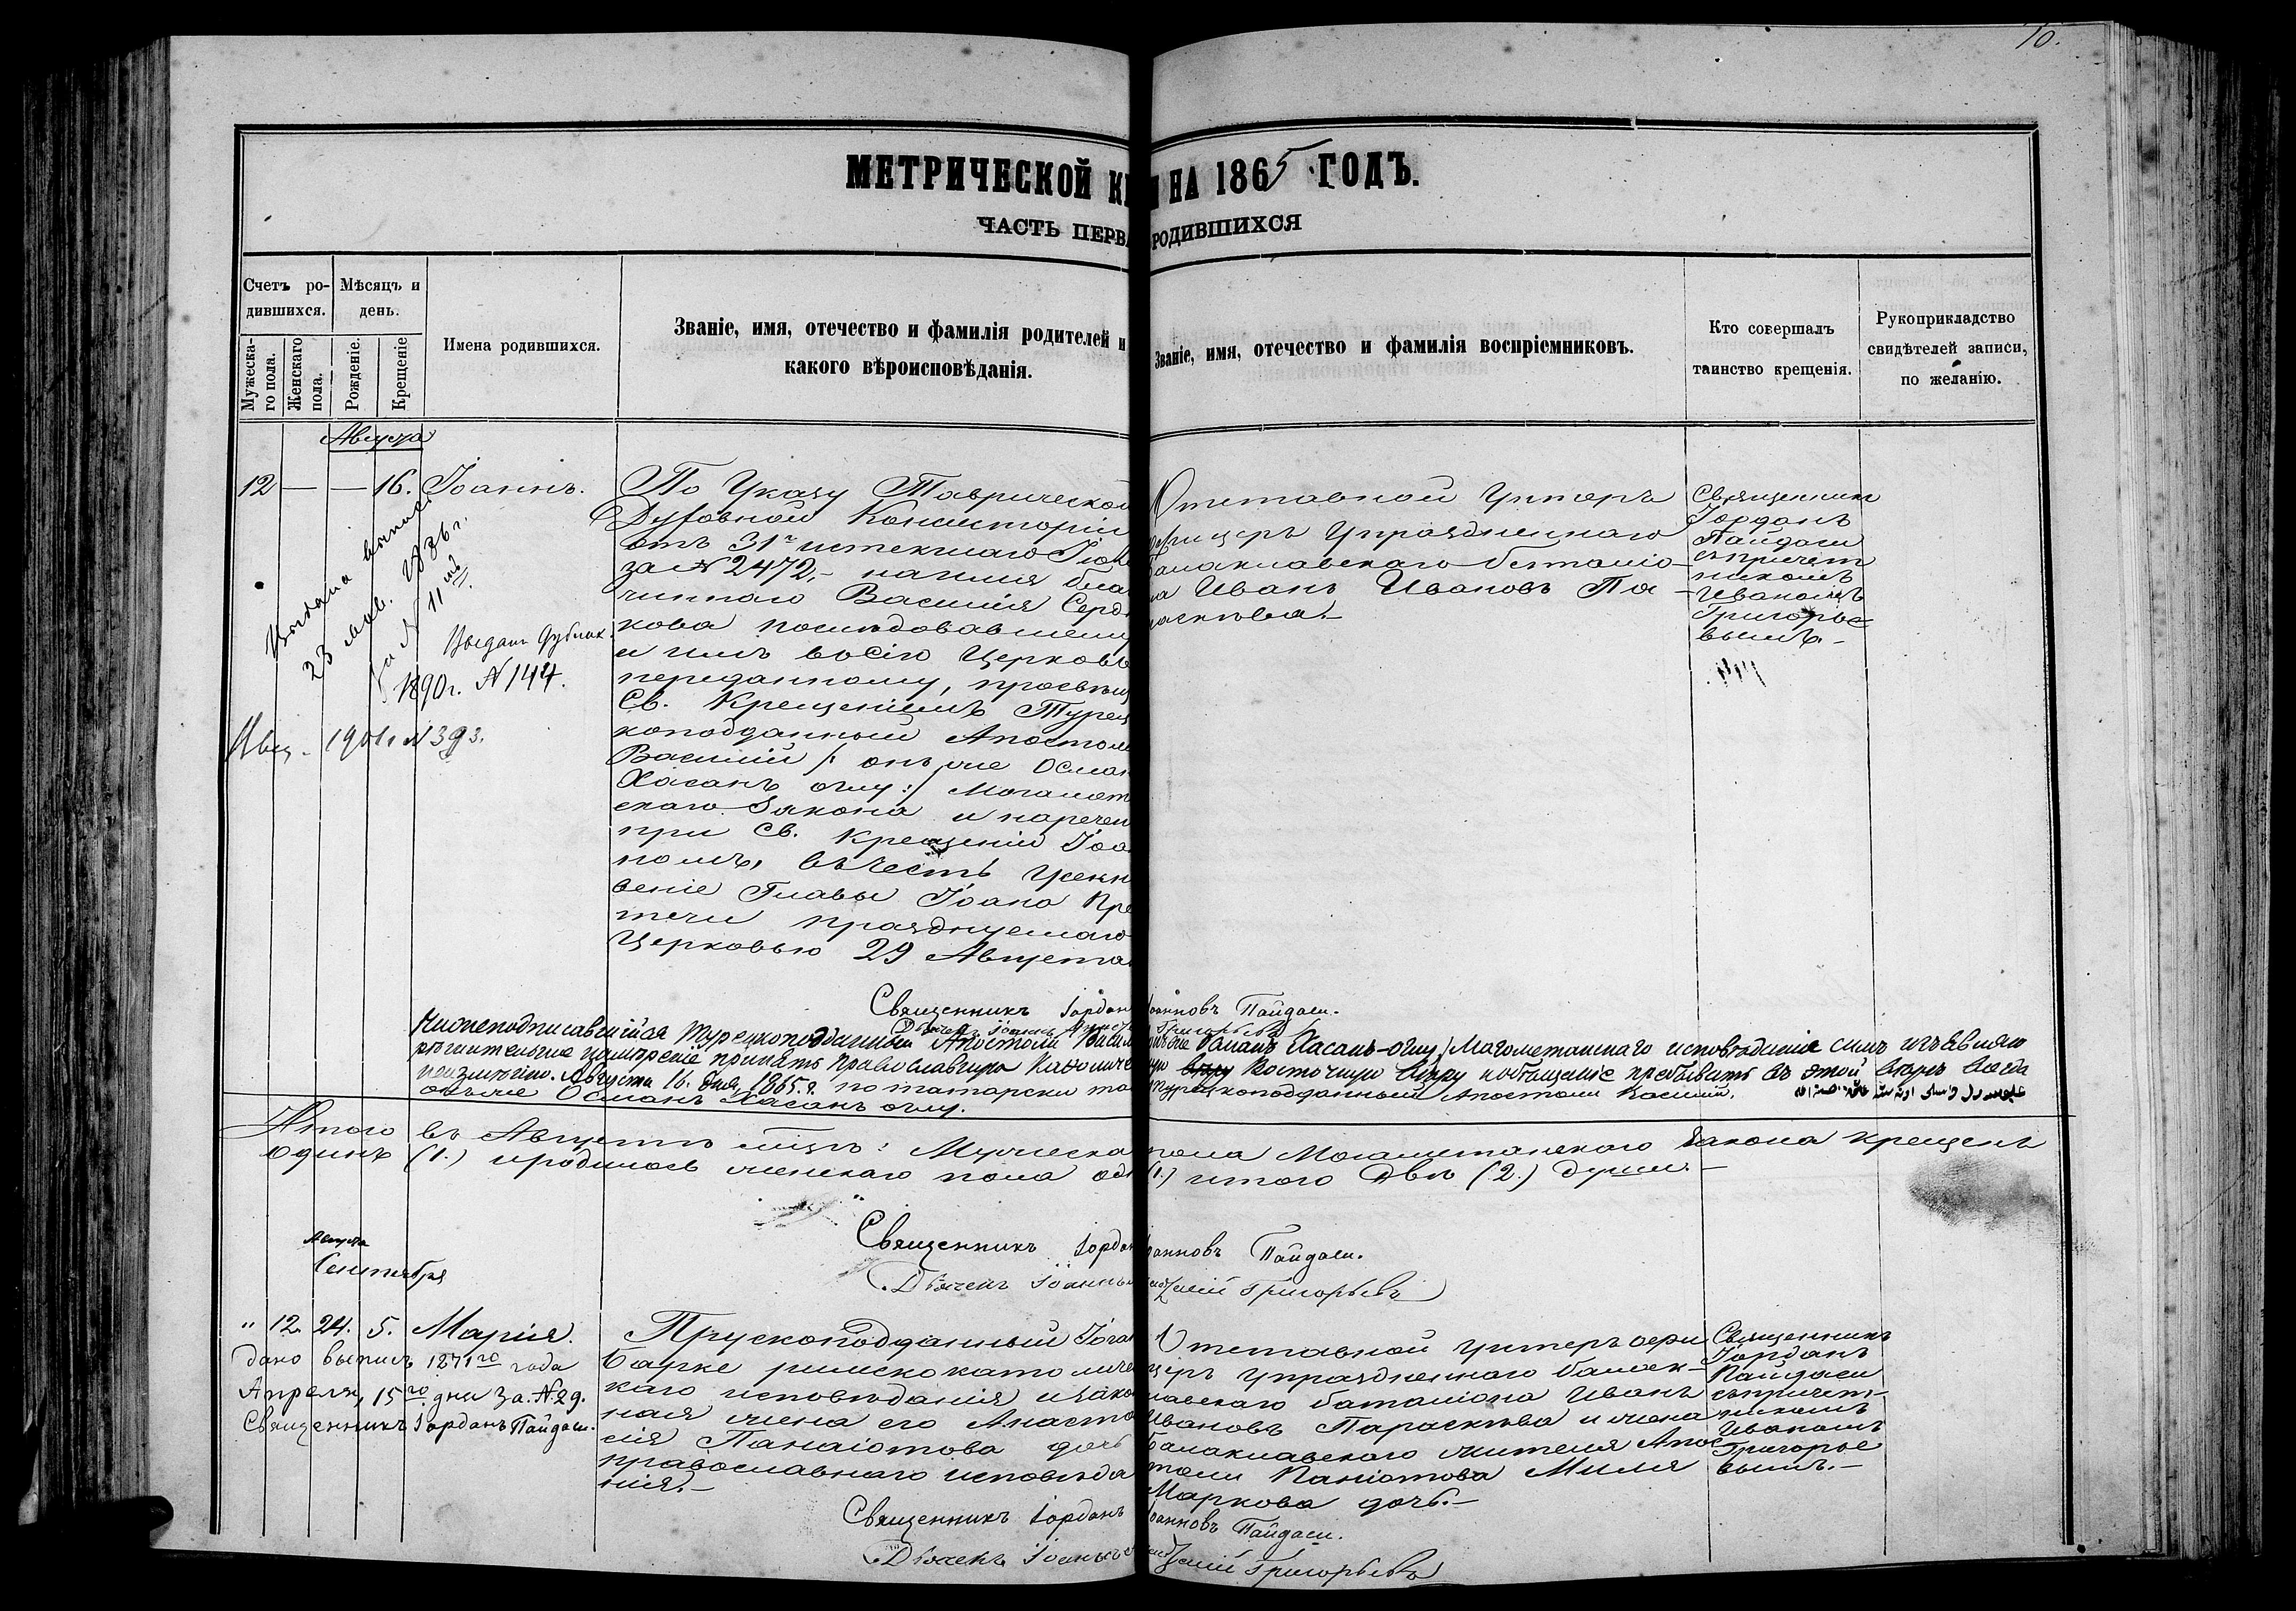 70.
МЕТРИЧЕСКОЙ КН И НА 1865 ГОДЪ.
ЧАСТЬ ПЕРВА РОДИВШИХСЯ
Счетъ ро-
дившихся.
Мужеска-
го пола.
Женскаго
пола.
Мѣсяцъ и
день.
Рожденіе.
Крещеніе
Имена родившихся.
Званіе, имя, отечество и фамилія родителей и
какого вѣроисповѣданія.
Званіе, имя, отечество и фамилія воспріемниковъ.
Кто совершалъ
таинство крещенія.
Рукоприкладство
свидѣтелей записи,
по желанію.
Августа
12 — — 16. Іоаннъ.
Выдана выпись
23 1886 г.
за № 11
Выдан
1890 г. № 144.
1901 г. № 393.
По Указу Таврической
Духовной Консисторіи
отъ 31 истекшаго Іюл
за № 2472, — на имя бла
чиннаго Василія Серд
кова последовавшему
и имъ въ сію Церковь
переданному, просвѣщ
Св. Крещеніемъ Турец
коподданный Апостолъ
Василій /: онъ же Осман
Хасанъ оглу :/ Могамет
скаго Закона и наречен
при Св. Крещеніи Іоа
номъ, въ честь Усекн
веніе Главы Іоана Пре
течи празднуемаго
Церковью 29 Августа
Отставной Унтеръ
офицеръ Упраздненнаго
балаклавскаго баталіо-
на Иванъ Ивановъ Па-
раскѣва. —
Священникъ
Іорданъ
Пайдаси
съ причет
никомъ
Иваномъ
Григорье
вымъ. —
Священникъ Іордан Іоанновъ Пайдаси.
Дьячекъ Іоаннъ Григорьевъ
Нижеподписавшійся Турецкоподданный Апостолъ Васил онъ же Османъ Хасанъ-оглу) Магометанскаго исповѣданія симъ изъявляю
рѣшительное намѣреніе принять Православную Каѳоличе ую Восточную вѣру и обѣщаніе пребывать въ этой вѣрѣ всегда
неизмѣнно. Августа 16. дня, 1865 г. по татарски турецкоподданный Апостолъ Василій.
онъ же Османъ Хасанъ оглу.
Итого въ Августѣ мцѣ: Мужеска пола Могаметанскаго Закона крещенъ
одинъ (1.) и родилось женскаго пола од (1.) итого Двѣ (2.) души. —
Священникъ Іордан Іоанновъ Пайдаси.
Дьячекъ Іоаннъ Григорьевъ
Августа
Сентября
" 12. 24. 5. Марія.
Дано выпись 1871го года
Апреля, 15го дня за. № 29.
Священникъ Іорданъ Пайдаси.
Прускоподданный Іоган
Барке римско католичес
каго исповѣданія и зако
ная жена его Анаста
сія Панаіотова дочь
православнаго исповѣда
нія. —
Отставной Унтеръ офи
церъ упраздненнаго балак-
лавскаго баталіона Иванъ
Ивановъ Параскѣва и жена
балаклавскаго жителя Апос
толи Паніотова Миля
Маркова дочь. —
Священникъ
Іорданъ
Пайдаси
съ причет-
никомъ
Иваномъ
Григорье
вымъ. —
Священникъ Іорданъ Іоанновъ Пайдаси.
Дьячекъ Іоаннъ Григорьевъ